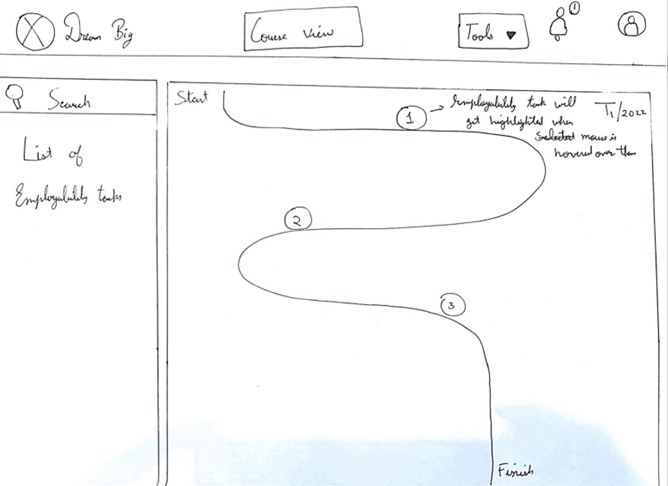 Dream Big
Course View
Tools
1
Search
List of
Employability tasks
Start
1
Employability task will
get highlighted when
selected mouse is
hovered over them
T1/2022
2
3
Finish